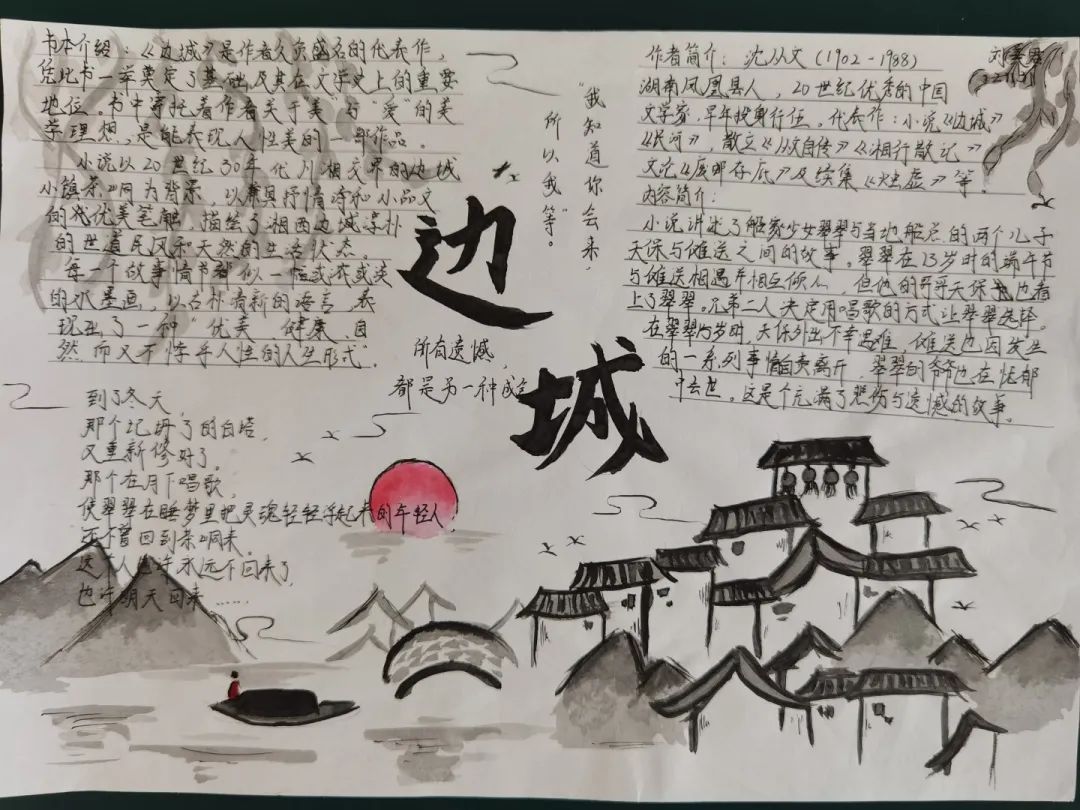 书本介绍：《边城》是作者久负盛名的代表作，
凭此书一举奠定了基础及其在文学史上的重要
地位。书中寄托着作者关于"美"与"爱"的美
学理想，是能表现人性美的一部作品。
小说以20世纪30年代川湘交界的边城
小镇茶峒为背景，以兼具抒情诗和小品文
的优美笔触，描绘了湘西边城淳朴
的世道民风和天然的生活状态。
每一个故事情节都似一幅或浓或淡
的水墨画，以古朴清新的语言，表
现出了一种"优美，健康，自
然，而又不悖乎人性的人生形式"
到了冬天，
那个圮坍了的白塔，
又重新修好了。
那个在月下唱歌，
使翠翠在睡梦里把灵魂轻轻浮起来的年轻人，
还不曾回到茶峒来。
这个人也许永远不回来了，
也许明天回来……
"我知道你会来，
所以我等。"
边城
所有遗憾，
都是另一种成全
作者简介：沈从文（1902-1988）
湖南凤凰县人，20世纪优秀的中国
文学家，早年投身行伍。代表作：小说《边城》
《长河》，散文《从文自传》《湘行散记》
文论《废邮存底》及续集《烛虚》等。
内容简介：
小说讲述了船家少女翠翠与当地船总的两个儿子
天保与傩送之间的故事。翠翠在13岁时的端午节
与傩送相遇并相互倾心，但他的哥哥天保也看
上了翠翠。兄弟二人决定用唱歌的方式让翠翠选择。
在翠翠15岁时，天保外出不幸遇难，傩送也因发生
的一系列事情自责离开，翠翠的爷爷也在忧郁
中去世。这是个充满了悲伤与遗憾的故事。